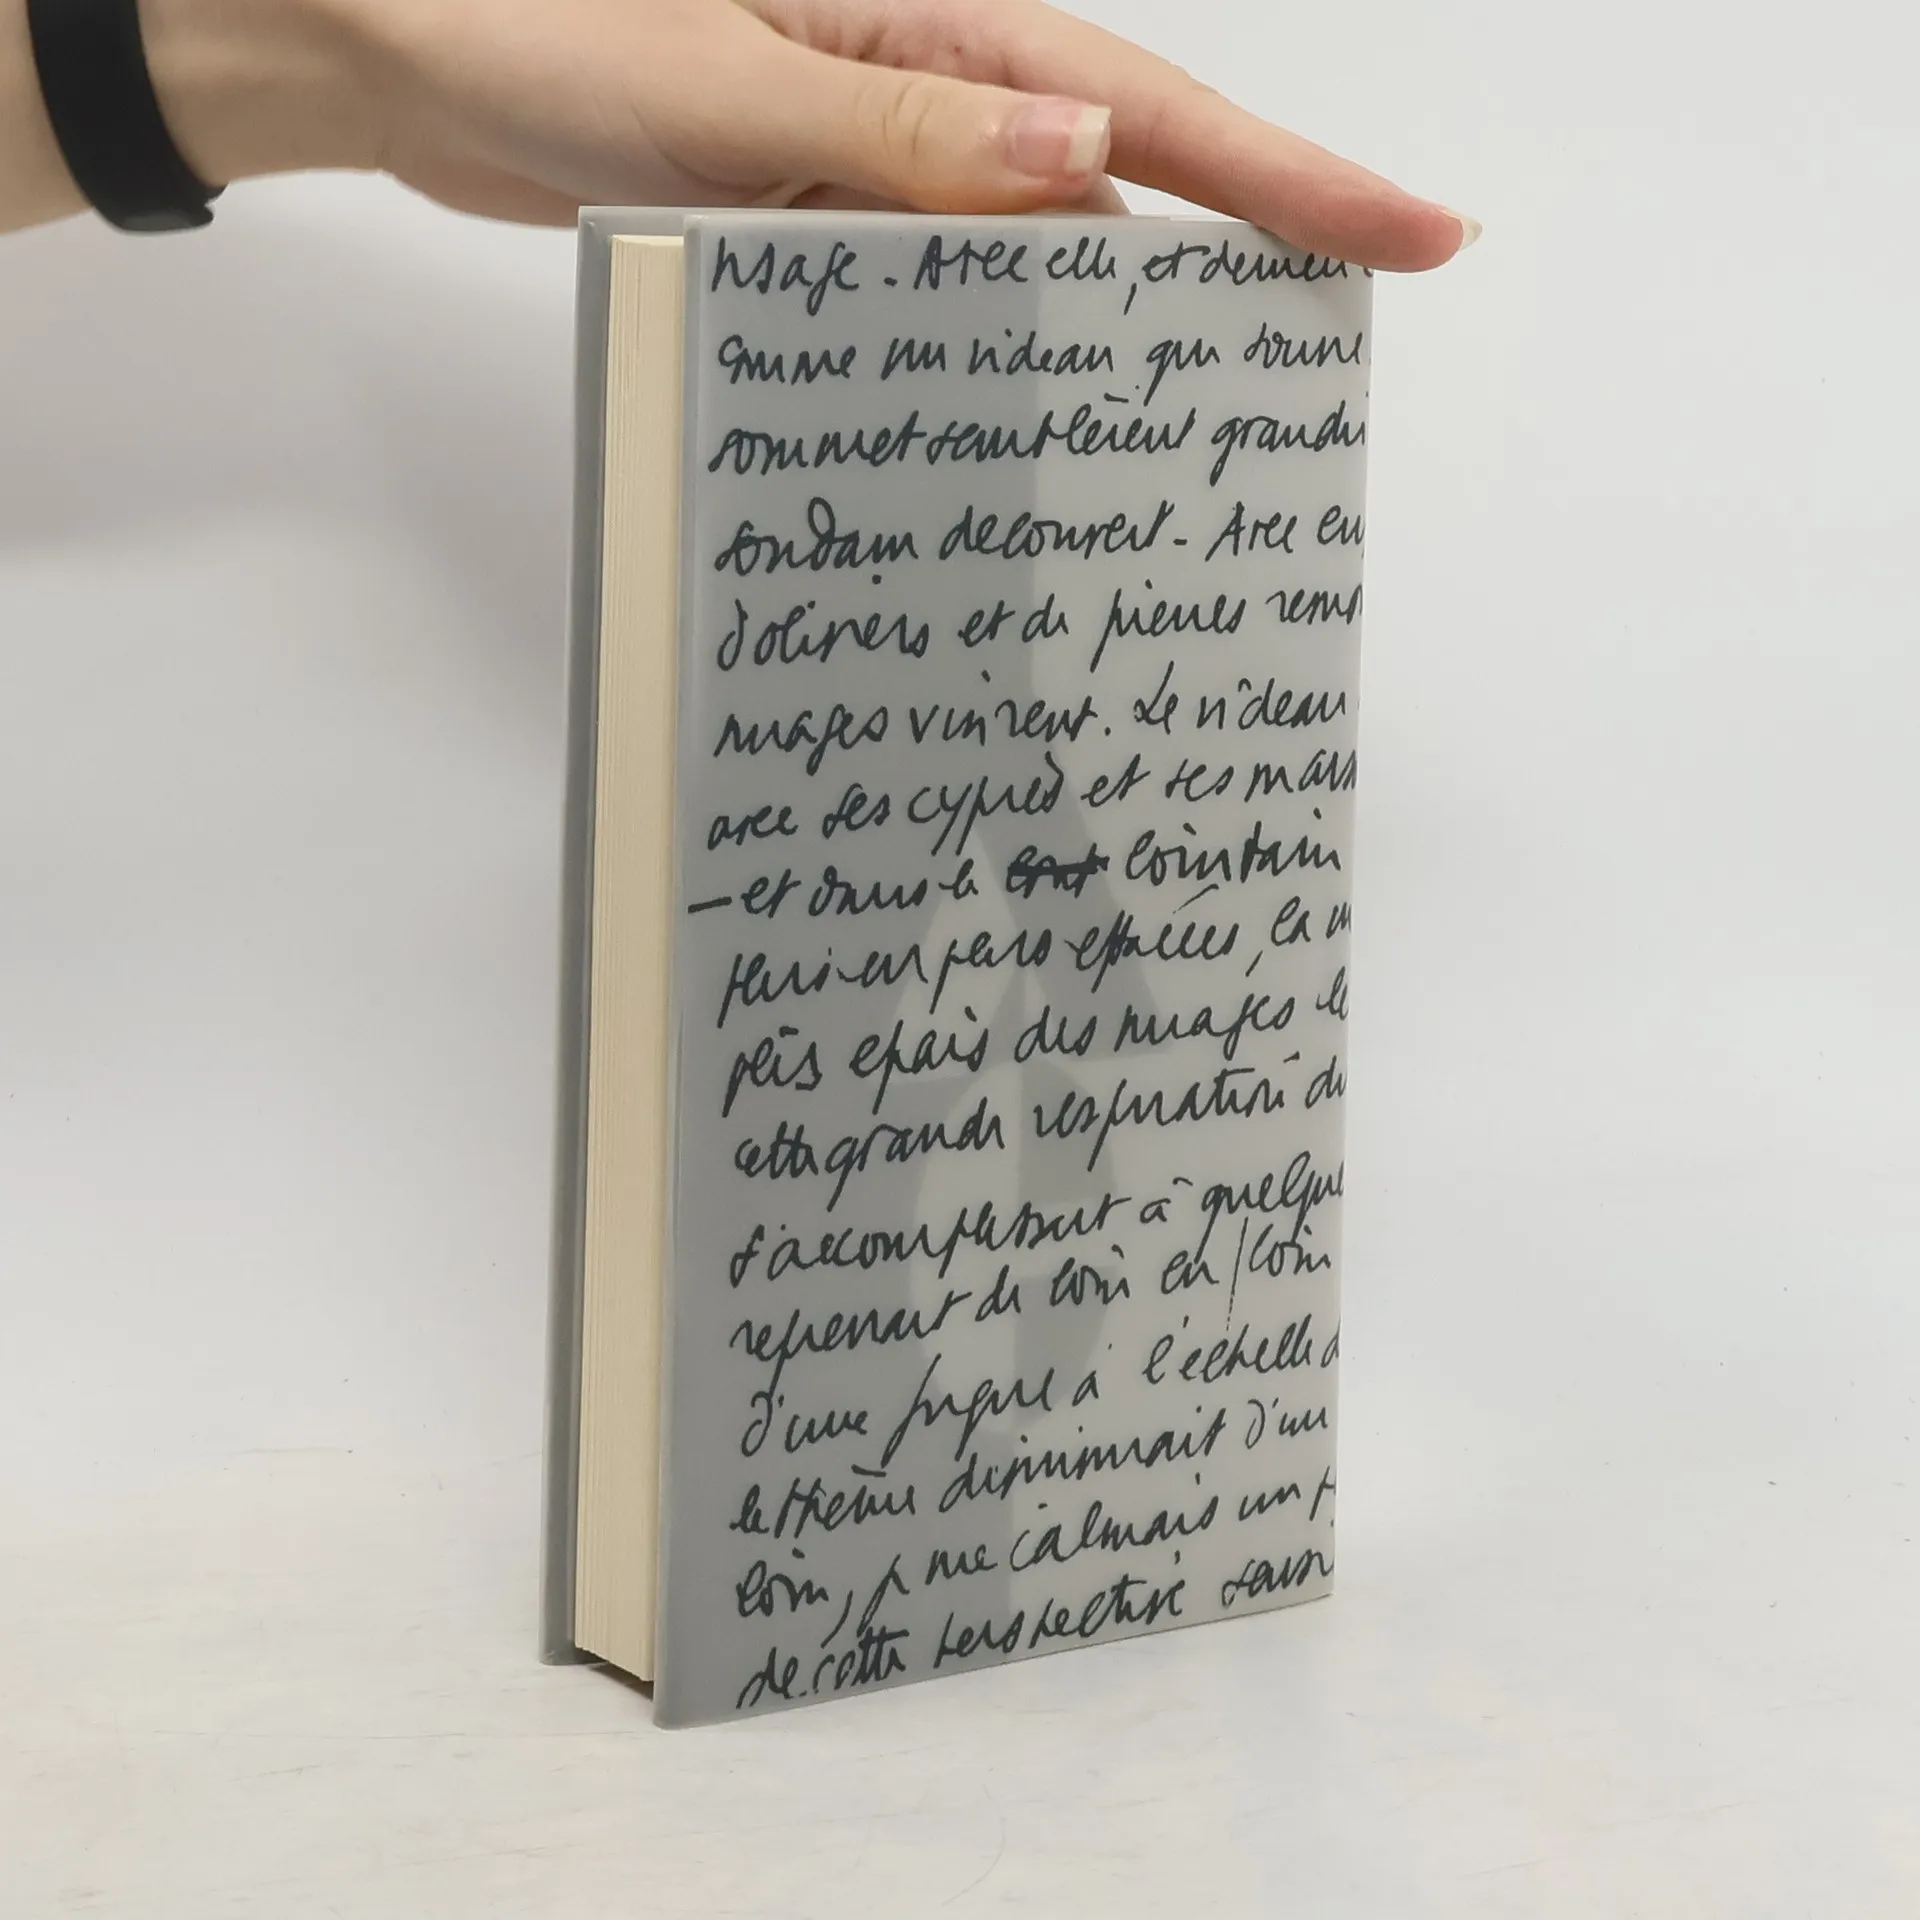 visage. Avec elle, et derrièr
comme un rideau qui s'ouvre
sommet semblèrent grandir
soudain découvert. Avec eux
d'oliviers et de pierres remon
nuages vinrent. Le rideau
avec ses cyprès et ses mais
— et dans le lointain
effacées, la m
plis épais des nuages le
cette grande respiration du
s'accomplissait à quelque
reprenait de loin en loin
d'une fugue à l'échelle d
le thème diminuait d'un
loin, je me calmais un p
de cette perspective